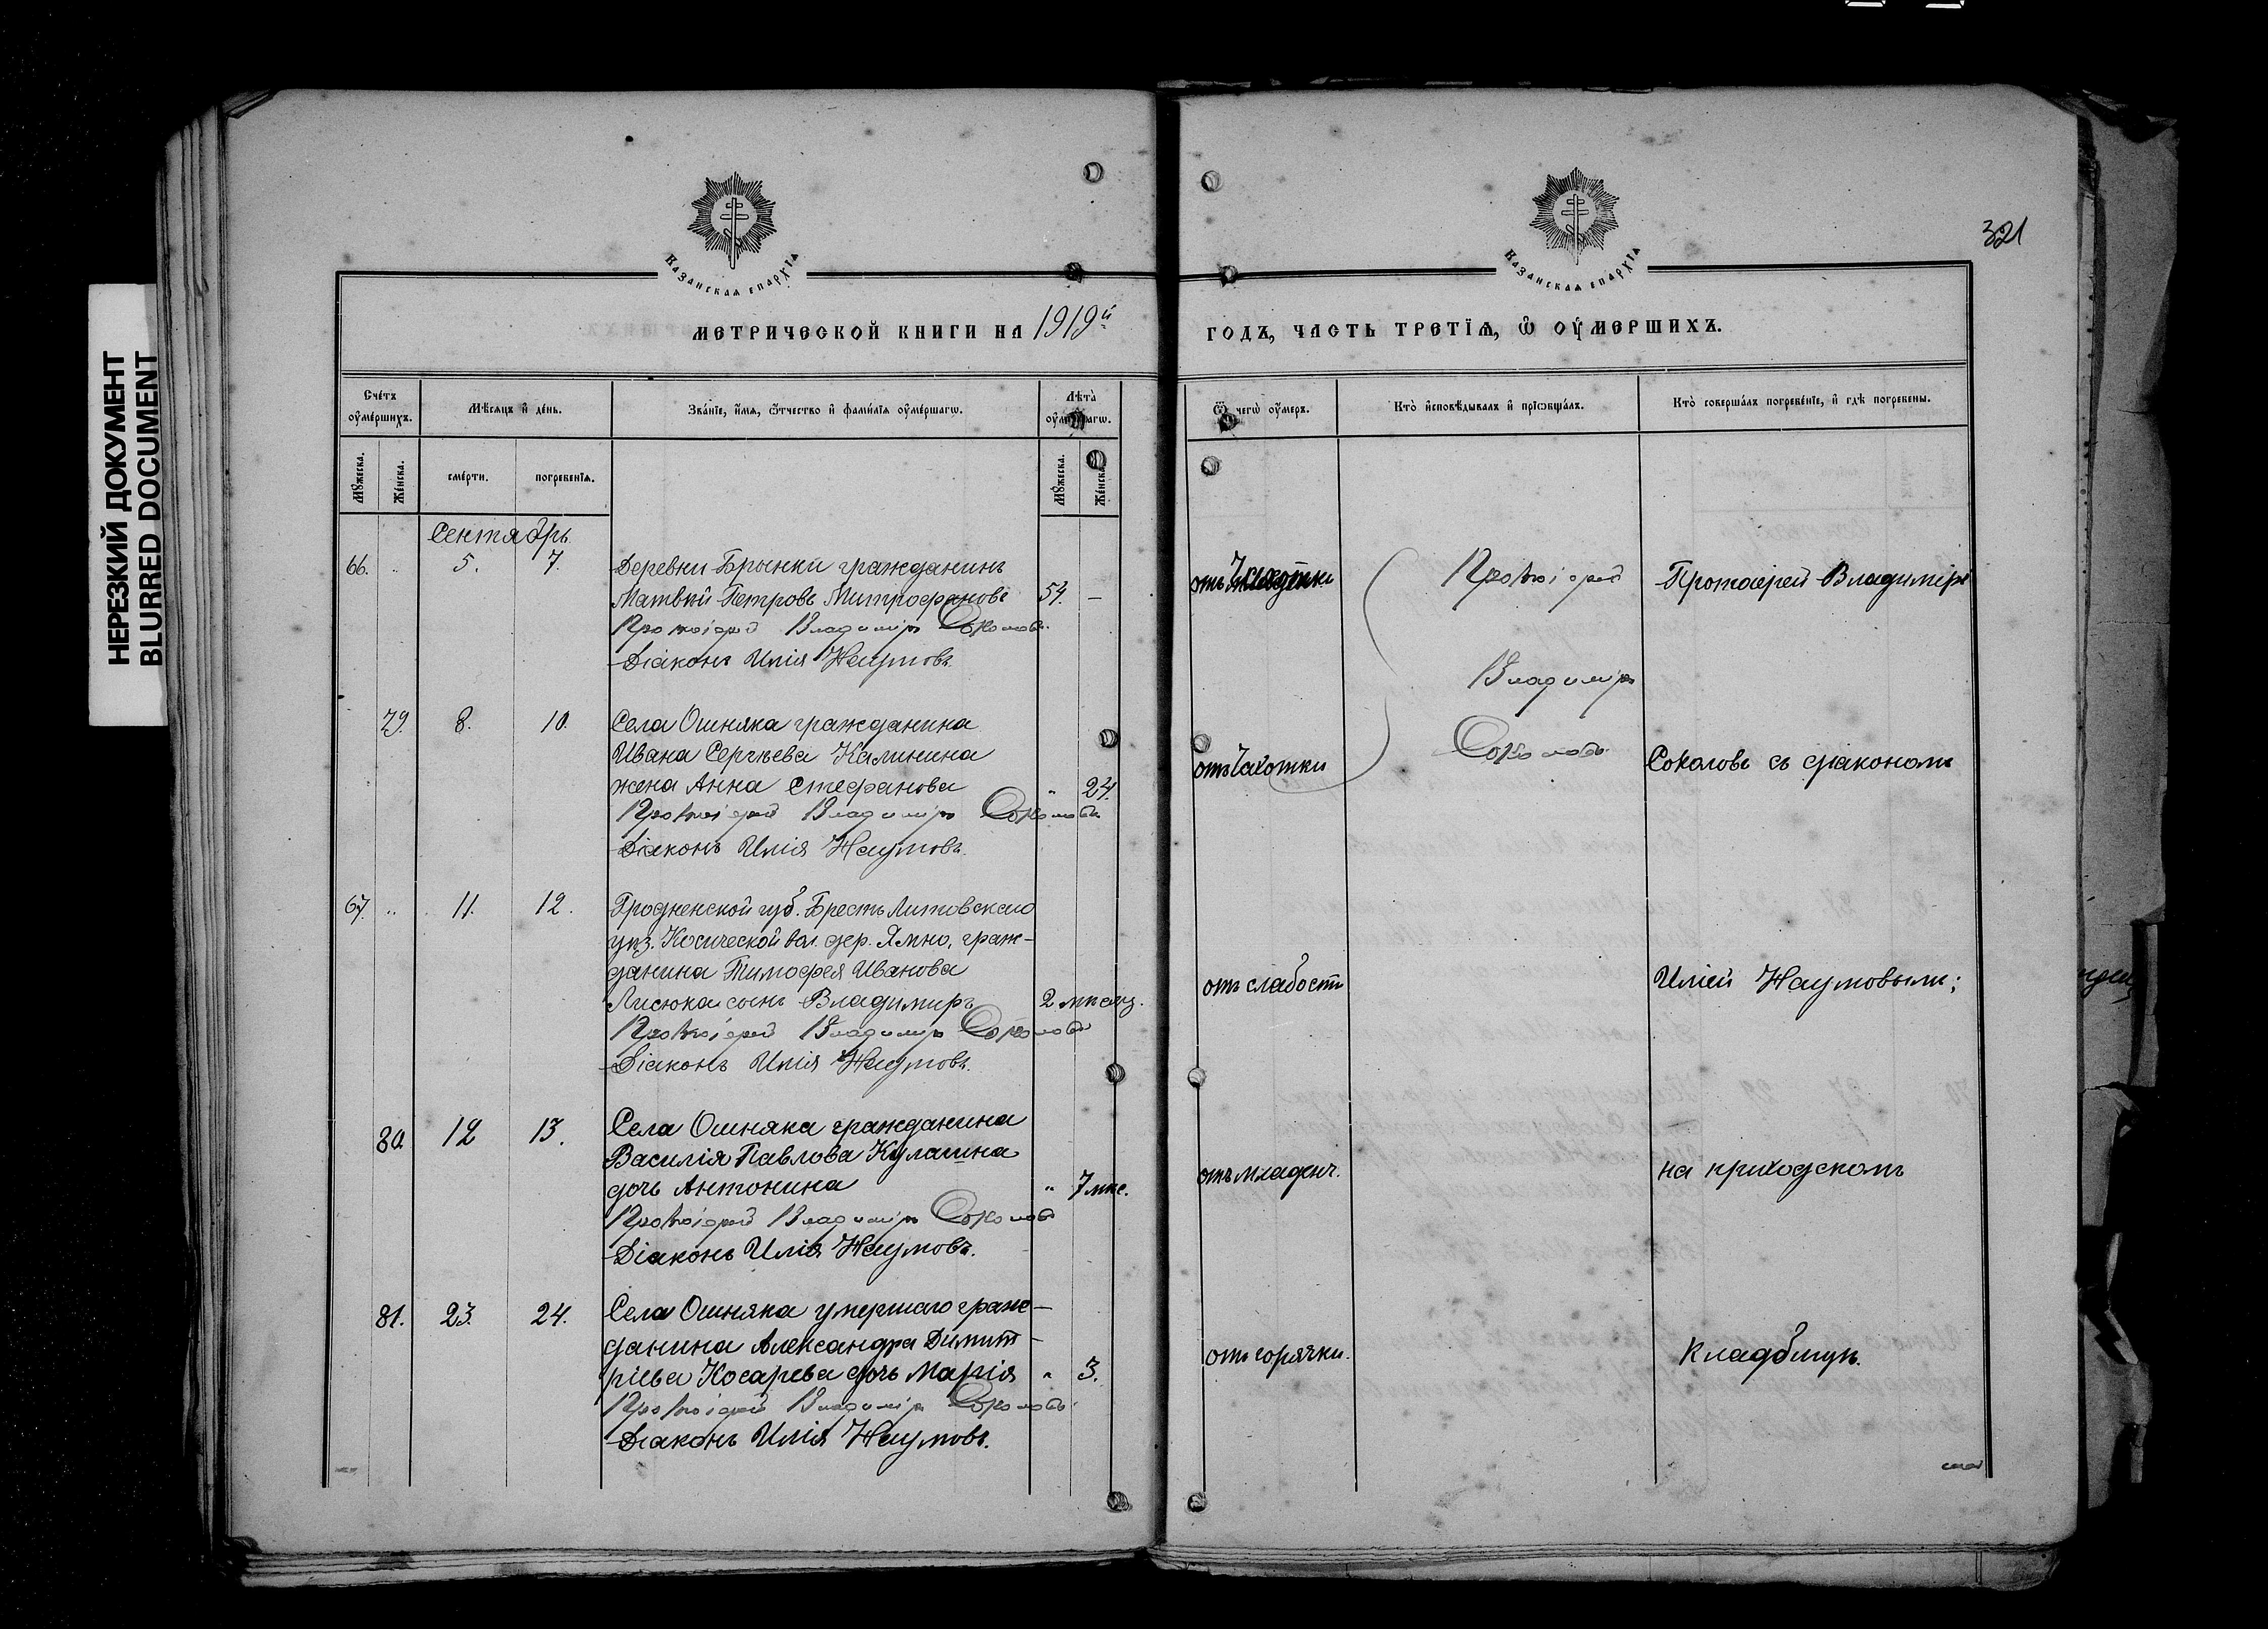 НЕРЕЗКИЙ ДОКУМЕНТ
BLURRED DOCUMENT
КАЗАНСКАЯ ЕПАРХІЯ
МЕТРИЧЕСКОЙ КНИГИ НА 1919й
Счетъ оумершихъ.
Мѣсяцъ и день.
Званїе, имя, ѿтчество и фамилїя оумершагѡ.
Лѣта оумершагѡ.
Мужеска.
Женска.
смерти.
погребенїя.
Мужеска.
Женска.
Сентябрь
66. „ 5. 7. Деревни Брынки гражданинъ
Матвѣй Петровъ Митрофановъ 54. —
Протоіерей Владиміръ Соколовъ
Діаконъ Илія Наумовъ.
79. 8. 10. Села Ошняка гражданина
Ивана Сергѣева Калинина
жена Анна Стефанова „ 24.
Протоіерей Владиміръ Соколовъ
Діаконъ Илія Наумовъ.
67. „ 11. 12. Гродненской губ. Брестъ Литовскаго
уѣз. Косической вол. дер. Ямно, граж-
данина Тимофея Иванова
Лисюка сынъ Владимиръ 2 мѣсяц.
Протоіерей Владиміръ Соколовъ
Діаконъ Илія Наумовъ.
80. 12 13. Села Ошняка гражданина
Василія Павлова Кулагина
дочь Антонина „ 7 мѣс.
Протоіерей Владиміръ Соколовъ
Діаконъ Илія Наумовъ.
81. 23. 24. Села Ошняка умершаго граж-
данина Александра Димит-
ріева Косарева дочь Марія „ 3.
Протоіерей Владиміръ Соколовъ
Діаконъ Илія Наумовъ.
321
КАЗАНСКАЯ ЕПАРХІЯ
ГОДЪ, ЧАСТЬ ТРЕТЇЯ, Ѡ ОУМЕРШИХЪ.
Ѿ чегѡ оумеръ.
Кто исповѣдывалъ и прїѡбщалъ.
Кто совершалъ погребенїе, и гдѣ погребены.
отъ
Протоіерей
Протоіерей Владиміръ
Владиміръ
отъ Чахотки
Соколовъ
Соколовъ съ діакономъ
отъ слабости
Иліей Наумовымъ;
отъ младенч.
на приходскомъ
отъ горячки.
кладбищѣ.